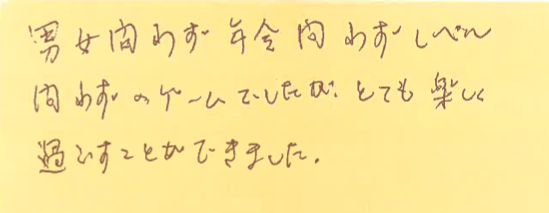 男女問わず年令問わずレベル
問わずのゲームでしたが、とても楽しく
過ごすことができました。